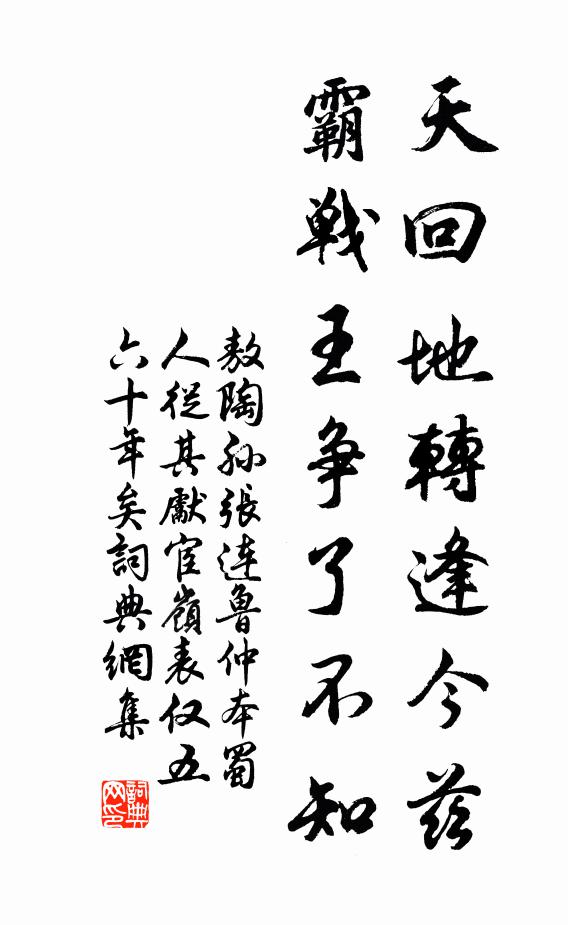 天回地轉逢今茲
霸戰王爭了不知
敖陶孫張連魯仲本蜀
人從其獻宦嶺表仅五
六十年矣詞典網集
詞典网印